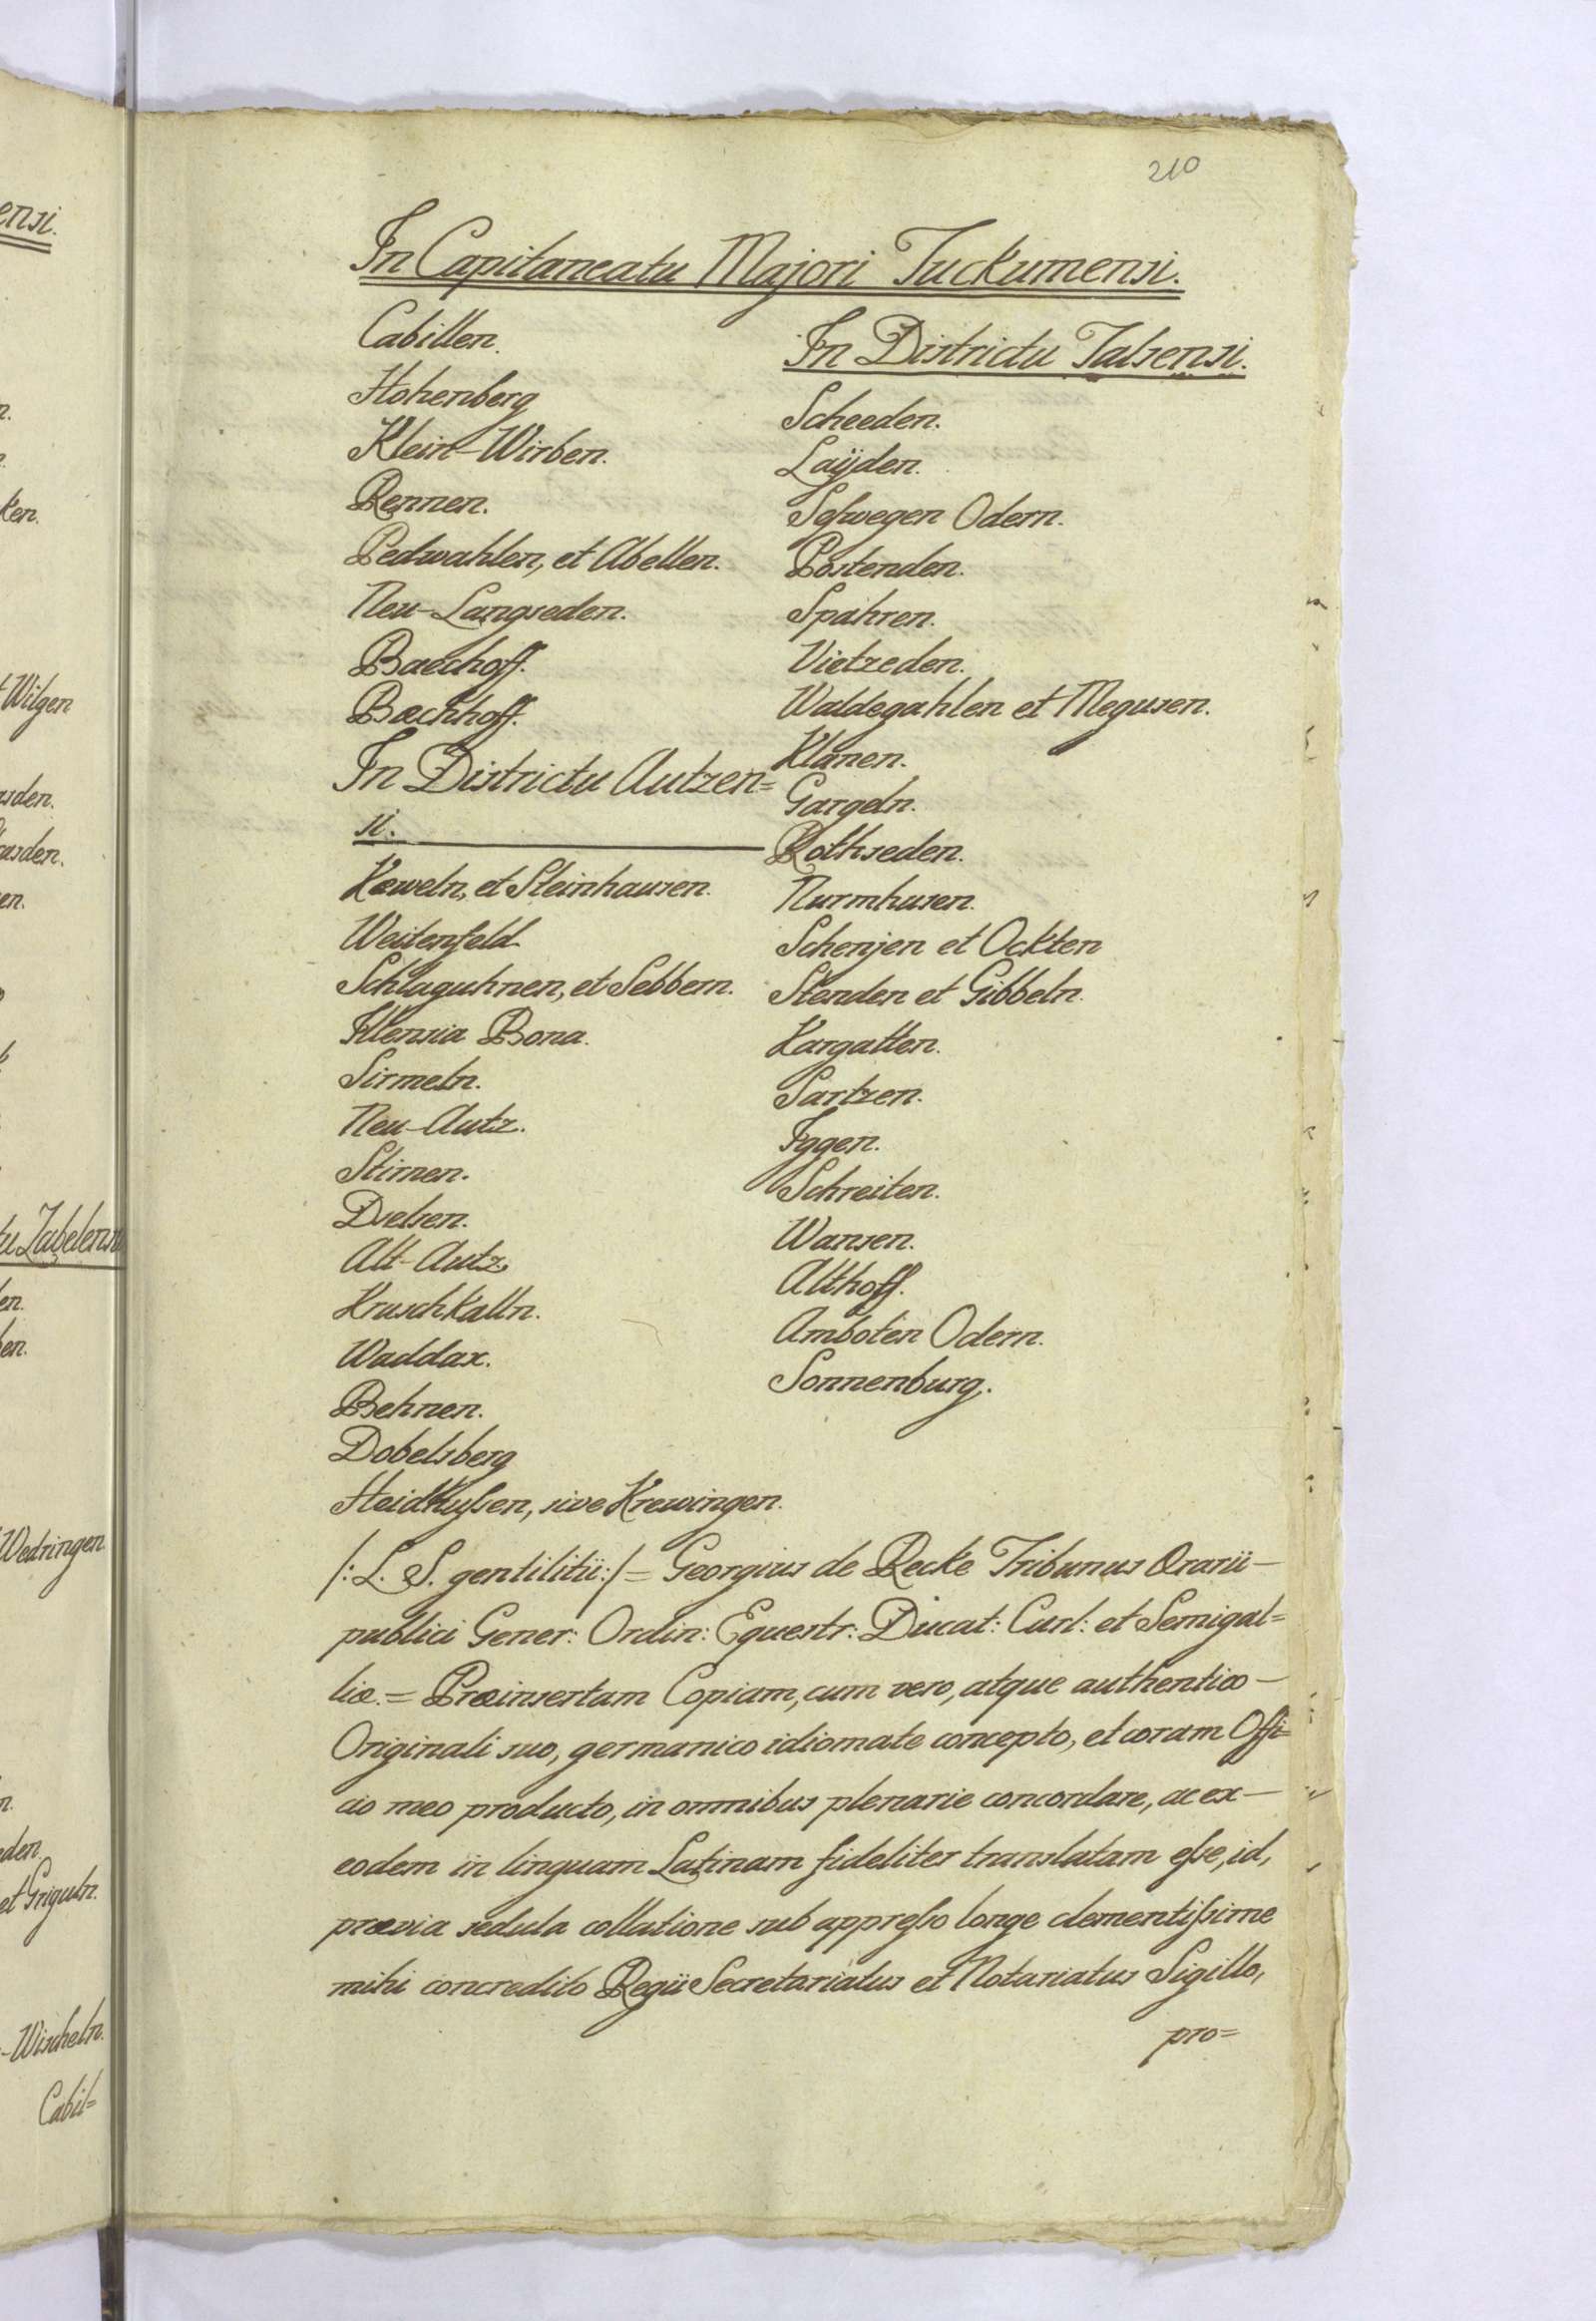 210
In Capitaneatu Majori Tuckumensi.
Cabillen.
Hohenberg
Klein-Wirben.
Rennen.
Pedwahlen, et Abellen.
Neu-Langseden.
Baechoff.
Bæchhoff.
In Districtu Autzen=
si.
Kæweln, et Steinhausen.
Weitenfeld.
Schlaguhnen, et Sebbern.
Illensia Bona.
Sirmeln.
Neu-Autz.
Stirnen.
Dselsen.
Alt-Autz.
Kruschkalln.
Waddax.
Behnen.
Dobelsberg
Heidkuſsen, sive Krewingen.
In Districtu Talsensi.
Scheeden.
Laÿden.
Seſswegen Odern.
Postenden.
Spahren.
Vietzeden.
Waldegahlen et Megusen.
Klanen.
Gargeln.
Rothseden.
Nurmhusen.
Schenjen et Ockten
Stenden et Gibbeln.
Kargatten.
Sartzen.
Iggen.
Schreiten.
Wansen.
Althoff.
Amboten Odern.
Sonnenburg.
/: L. S. gentilitii :/ = Georgius de Recke Tribunus Ærarii—
publici Gener: Ordin: Equestr: Ducat: Curl: et Semigal=
liæ. = Præinsertam Copiam, cum vero, atque authentico—
Originali suo, germanico idiomate concepto, et coram Offi=
cio meo producto, in omnibus plenarie concordare, ac ex—
eodem in linguam Latinam fideliter translatam eſse, id,
prævia sedula collatione sub appreſso longe clementiſsime
mihi concredito Regii Secretariatus et Notariatus Sigillo,
pro=